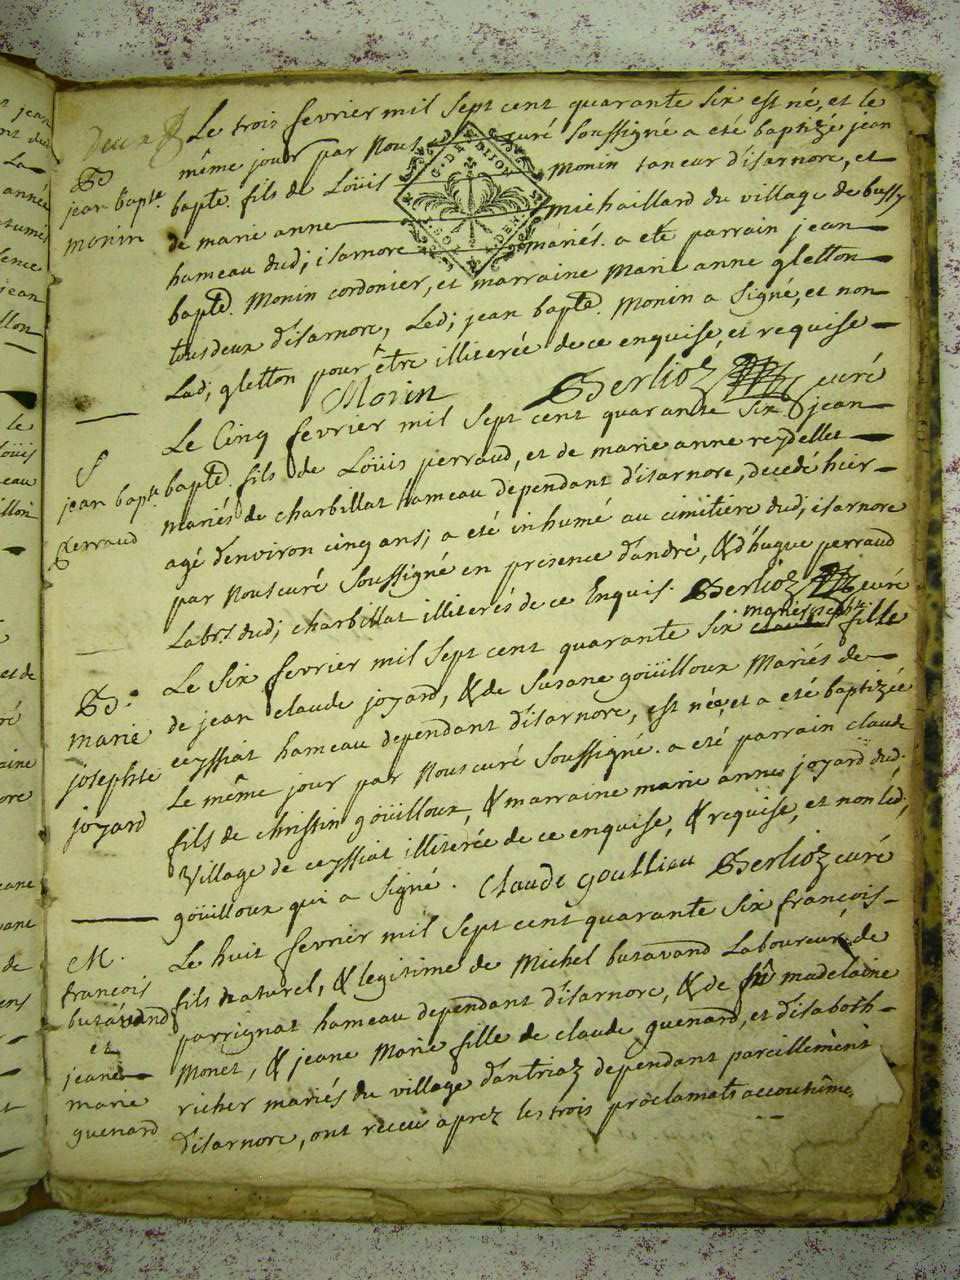 Le trois fevrier mil sept cent quarante six est né, et le
B
jean bapte.
monin
même jour par Nous curé soussigné a eté baptizée jean
bapte. fils de Loüis Monin taneur d'isarnore, et
de marie anne michaillard du village de bussy
hameau dud; isarnore mariés. a eté parrain jean
bapte. Monin cordonier, et marraine Marie anne gletton
tous deux d'isarnore, Led; jean bapte. Monin a signé, et non
Lad; gletton pour être illiterée de ce enquise, et requise
Monin Berlioz curé
G. DE DIJON
SOL
DEN
Le Cinq fevrier mil sept cent quarante six jean
S
jean bapte
perraud
bapte. fils de Loüis perraud, et de marie anne reydellet
mariés de charbillat hameau dependant d'isarnore, decedé hier
agé d'environ cinq ans; a eté inhumé au cimitiere dud; isarnore
par Nous curé soussigné en presence d'andré, & d'hugue perraud
Labrs. dud; charbillat illiterés de ce Enquis. Berlioz curé
Le six fevrier mil sept cent quarante six fille
B.
marie
josephte
joyard
de jean claude joyard, & de susane goüilloux Mariés de
ceyssiat hameau dependant d'isarnore, est née, et a eté baptizée
Le même jour par Nous curé soussigné. a eté parrain claude
fils de christin goüilloux, & marraine marie anne joyard dud;
village de ceyssiat illiterée de ce enquise, & requise, et non led;
goüilloux qui a signé. Claude goulliau Berlioz curé
Le huit fevrier mil sept cent quarante six françois
M.
francois
butavand
et
jeane
marie
guenard
fils naturel, & legitime de Michel butavand Laboureur de
parrignat hameau dependant d'isarnore, & de madelaine
Monet, & jeane Marie fille de claude guenard, et d'isabeth
richer mariés du village d'antriaz dependant pareillement
d'isarnore, ont receu aprez les trois proclamats accoutumé